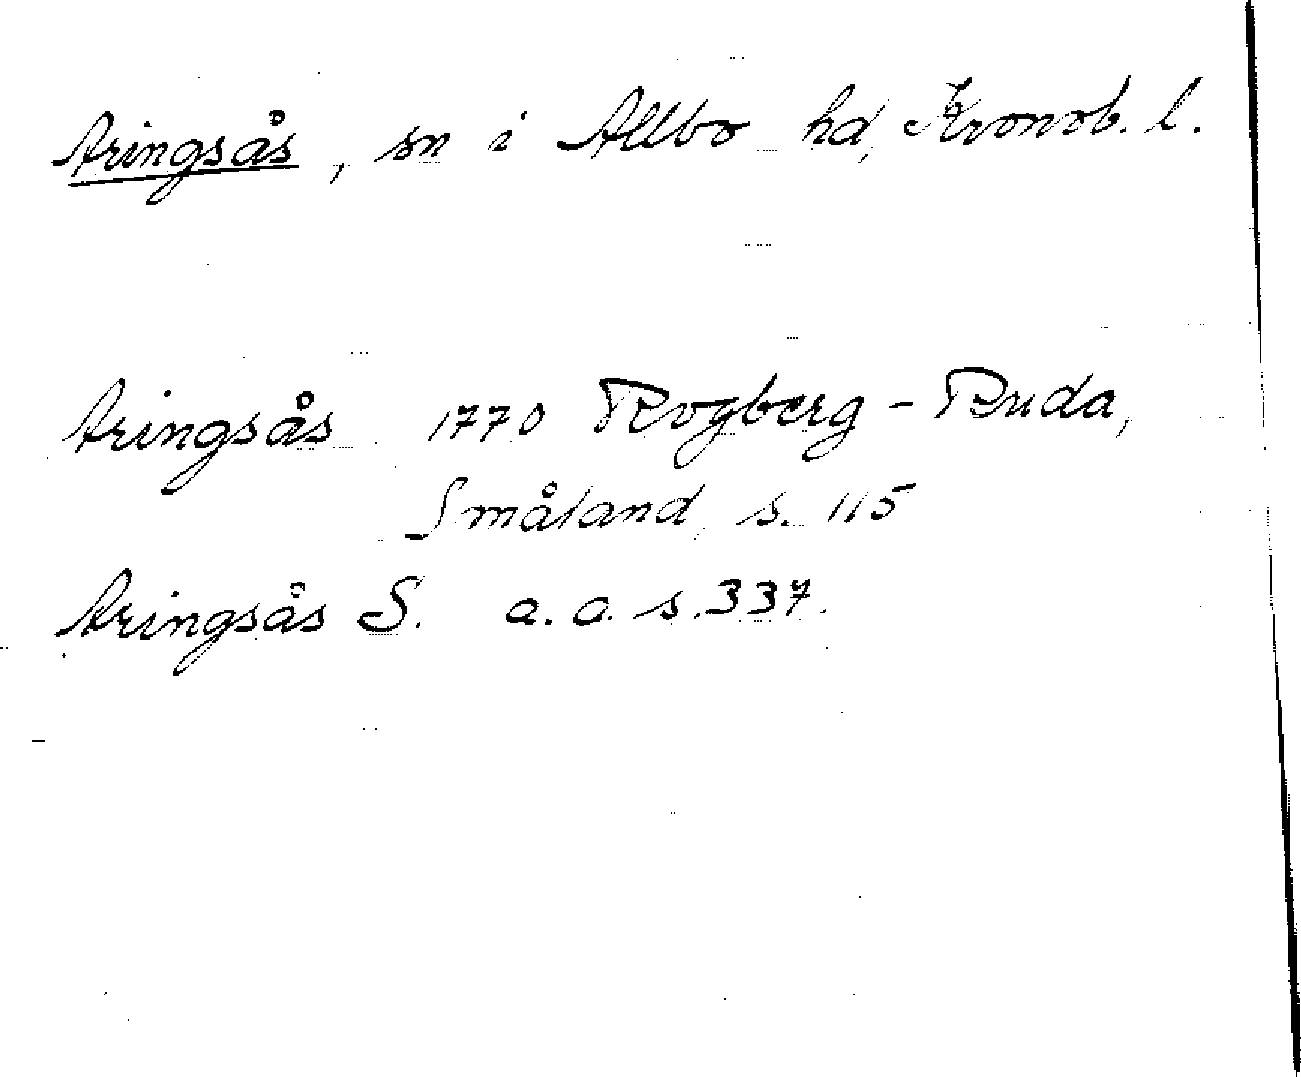 Aringsås, sn i Allbo hd, Kronob. l.
Aringsås 1770 Rogberg - Ruda,
Småland, s. 115
Aringsås S. a. a. s. 337.